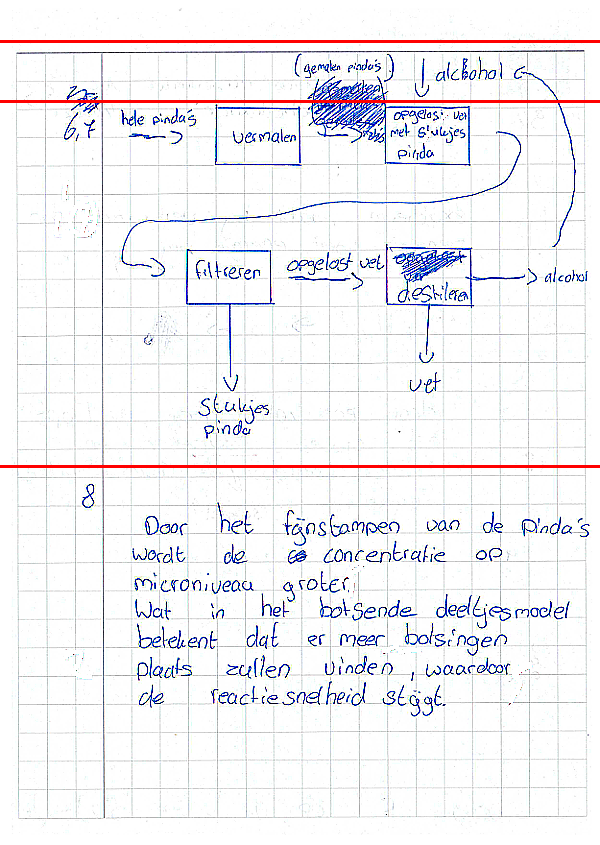 (gemalen pinda's)
alcohol
6,7
hele pinda's
vermalen
opgelost vet
met stukjes
pinda
filtreren
opgelost vet
destileren
alcohol
Stukjes
pinda
vet
8
Door het fijnstampen van de pinda's
wordt de concentratie op
microniveau groter.
Wat in het botsende deeltjesmodel
betekent dat er meer botsingen
plaats zullen vinden, waardoor
de reactiesnelheid stijgt.